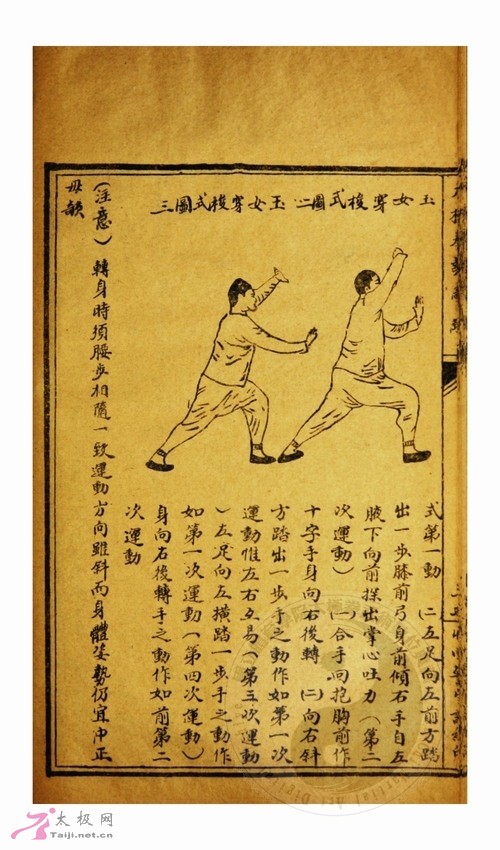 玉女穿梭式圖二
玉女穿梭式圖三
式第一動　(二)左足向左前方踏
出一步膝前弓身前傾右手自左
腋下向前探出掌心吐力(第二
次運動)　(一)合手回抱胸前作
十字手身向右後轉　(二)向右斜
方踏出一步手之動作如第一次
運動惟左右互易(第三次運動
)左足向左橫踏一步手之動作
如第一次運動(第四次運動)
身向右後轉手之動作如前第二
次運動
(注意)轉身時須腰步相隨一致運動方向雖斜而身體姿勢仍宜中正
毋顧
太极网
Taiji.net.cn